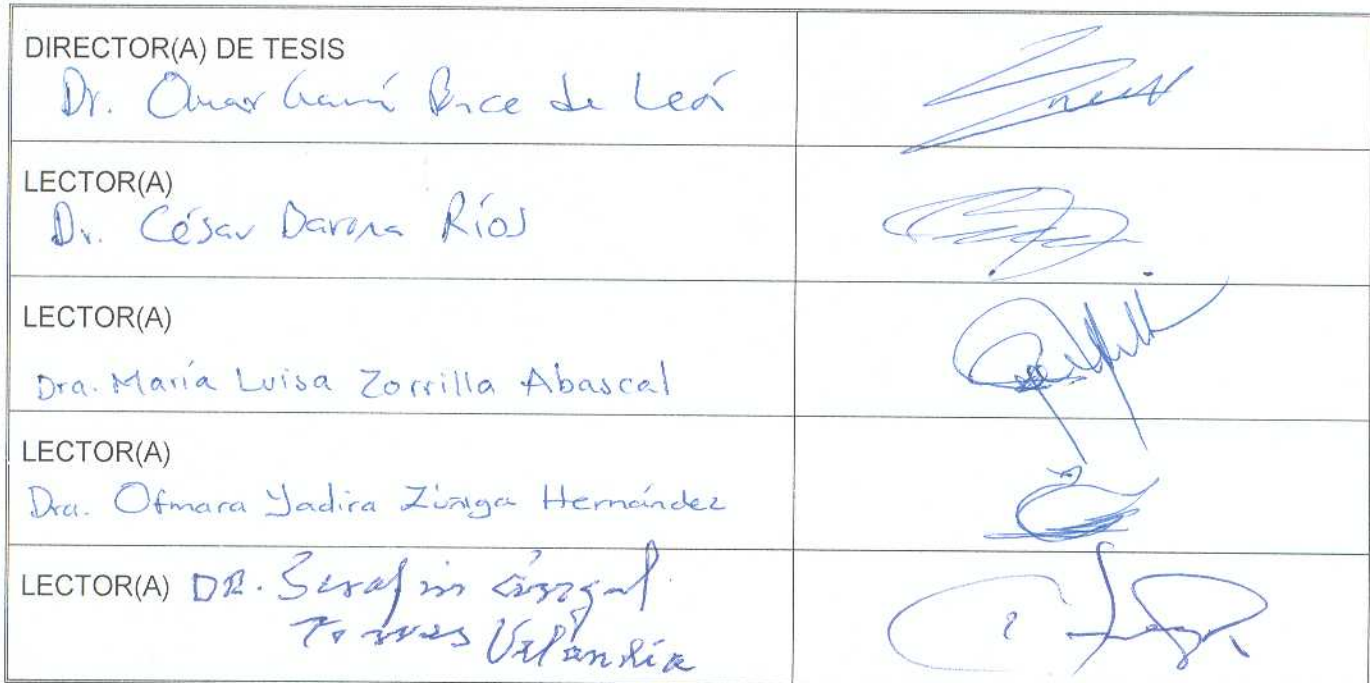 DIRECTOR(A) DE TESIS
Dr. Omar García Ponce de León
LECTOR(A)
Dr. César Darona Ríos
LECTOR(A)
Dra. María Luisa Zorrilla Abascal
LECTOR(A)
Dra. Ofmara Yadira Zúñiga Hernández
LECTOR(A) DR. Serafín Ángel
Torres Velandia